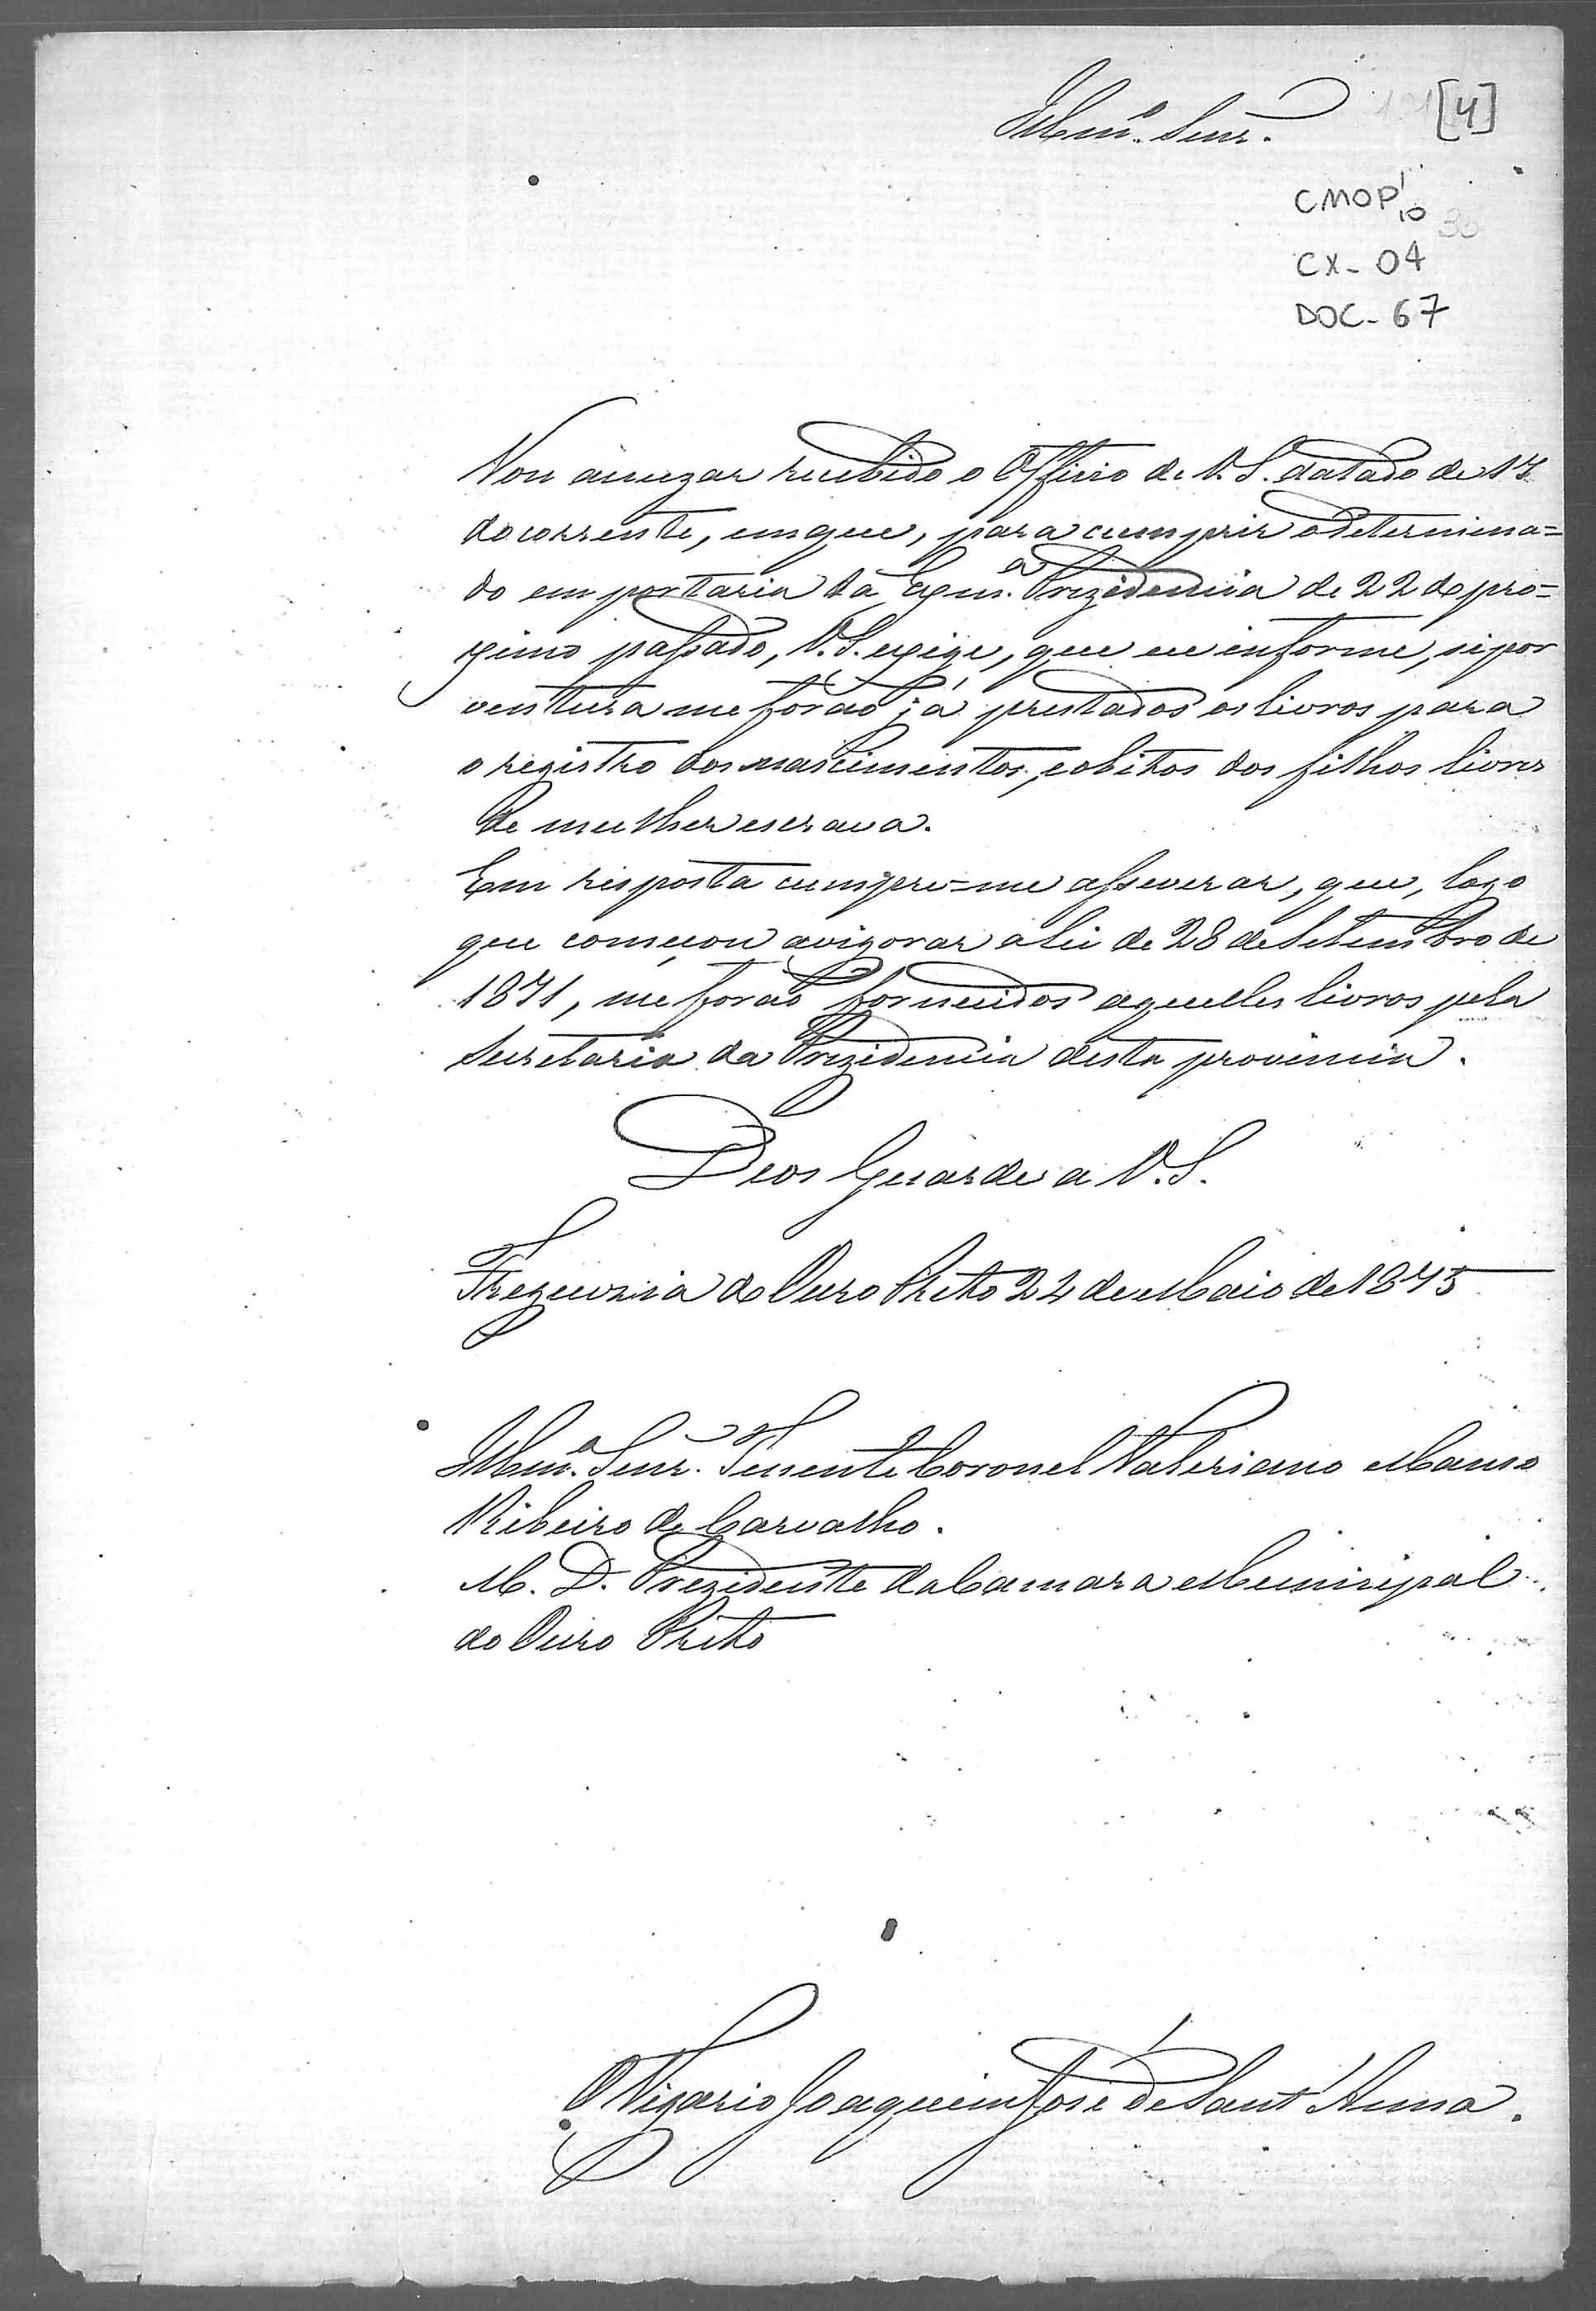 Illmº. Senr.
[4]
CMOP 1/10
CX- 04
DOC- 67
Vou accuzar recebido o Officio de V. S. datado de 17
do corrente, em que, para cumprir o determina=
do em portaria da Exmª. Prezidencia de 22 do pro=
ximo passado, V. S. exige, que eu informe, si por
ventura me forão já prestados os livros para
o registro dos nascimentos, e obitos dos filhos livres
de mulher escrava.
Em resposta cumpre=me asseverar, que, logo
que começou a vigorar a lei de 28 de Setembro de
1871, me forão fornecidos aquelles livros pela
Secretaria da Prezidencia desta provincia.
Deos Guarde a V. S.
Freguezia do Ouro Preto 24 de Maio de 1875
Illmº. Senr. Tenente Coronel Valeriano Manso
Ribeiro de Carvalho.
M. D. Prezidente da Camara Municipal
do Ouro Preto
O Vigario Joaquim José de Sant'Anna.